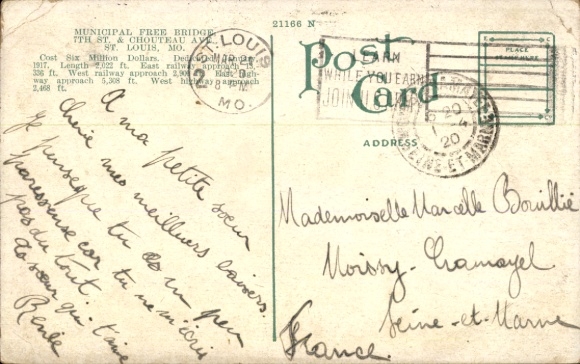 MUNICIPAL FREE BRIDGE,
7TH ST. & CHOUTEAU AVE.
ST. LOUIS, MO.
Cost Six Million Dollars. Dedicated
1917. Length 2,022 ft. East railway approach
336 ft. West railway approach East high-
way approach 5,308 ft. West highway approach
2,468 ft.
21166 N
ST. LOUIS
MO.
2
LEARN
WHILE YOU EARN
JOIN
Post
Card
PLACE
20
20
SEINE-ET-MARNE
ADDRESS
A ma petite soeur
cherie mes meilleurs baisers.
Je pense que tu es un peu
paresseuse car tu ne m'écris
pas du tout.
Ta sœur qui t'aime
Renée
Mademoiselle Marcelle Bouillié
Moissy-Cramayel
Seine-et-Marne
France